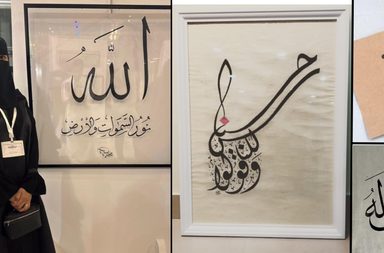 الله
نور السموات والأرض
وقولوا للناس حسنا